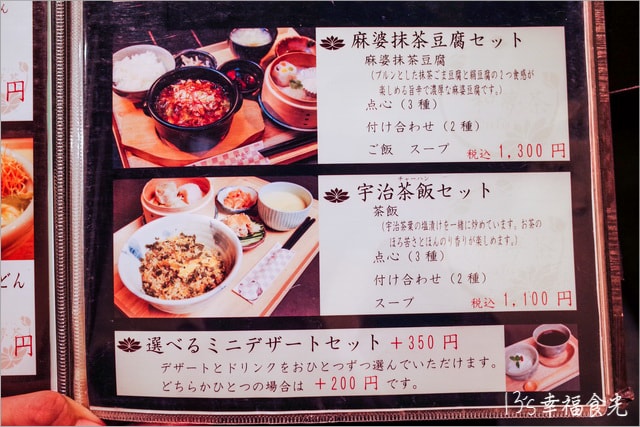 麻婆抹茶豆腐セット
麻婆抹茶豆腐
(プルンとした抹茶ごま豆腐と絹豆腐の2つ食感が
楽しめる旨辛で濃厚な麻婆豆腐です。)
点心(3種)
付け合わせ(2種)
ご飯 スープ 税込 1,300円
チャーハン
宇治茶飯セット
茶飯
(宇治茶葉の塩漬けを一緒に炒めています。お茶の
ほろ苦さとほんのり香りが楽しめます。)
点心(3種)
付け合わせ(2種)
スープ 税込 1,100円
選べるミニデザートセット +350円
デザートとドリンクをおひとつずつ選んでいただけます。
どちらかひとつの場合は +200円 です。
円
どん
円
13's幸福食光